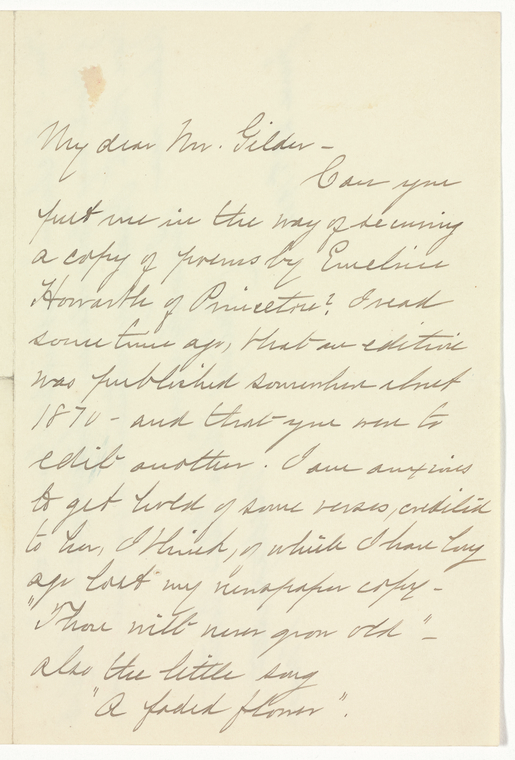 My dear Mr. Gilder -
Can you
put me in the way of securing
a copy of poems by Emeline
Howarth of Princeton? I read
some time ago, that an edition
was published somewhere about
1870 - and that you were to
edit another. I am anxious
to get hold of some verses, credited
to her, I think, of which I have long
ago lost my newspaper copy -
"Thou wilt never grow old" -
also the little song
"A faded flower".